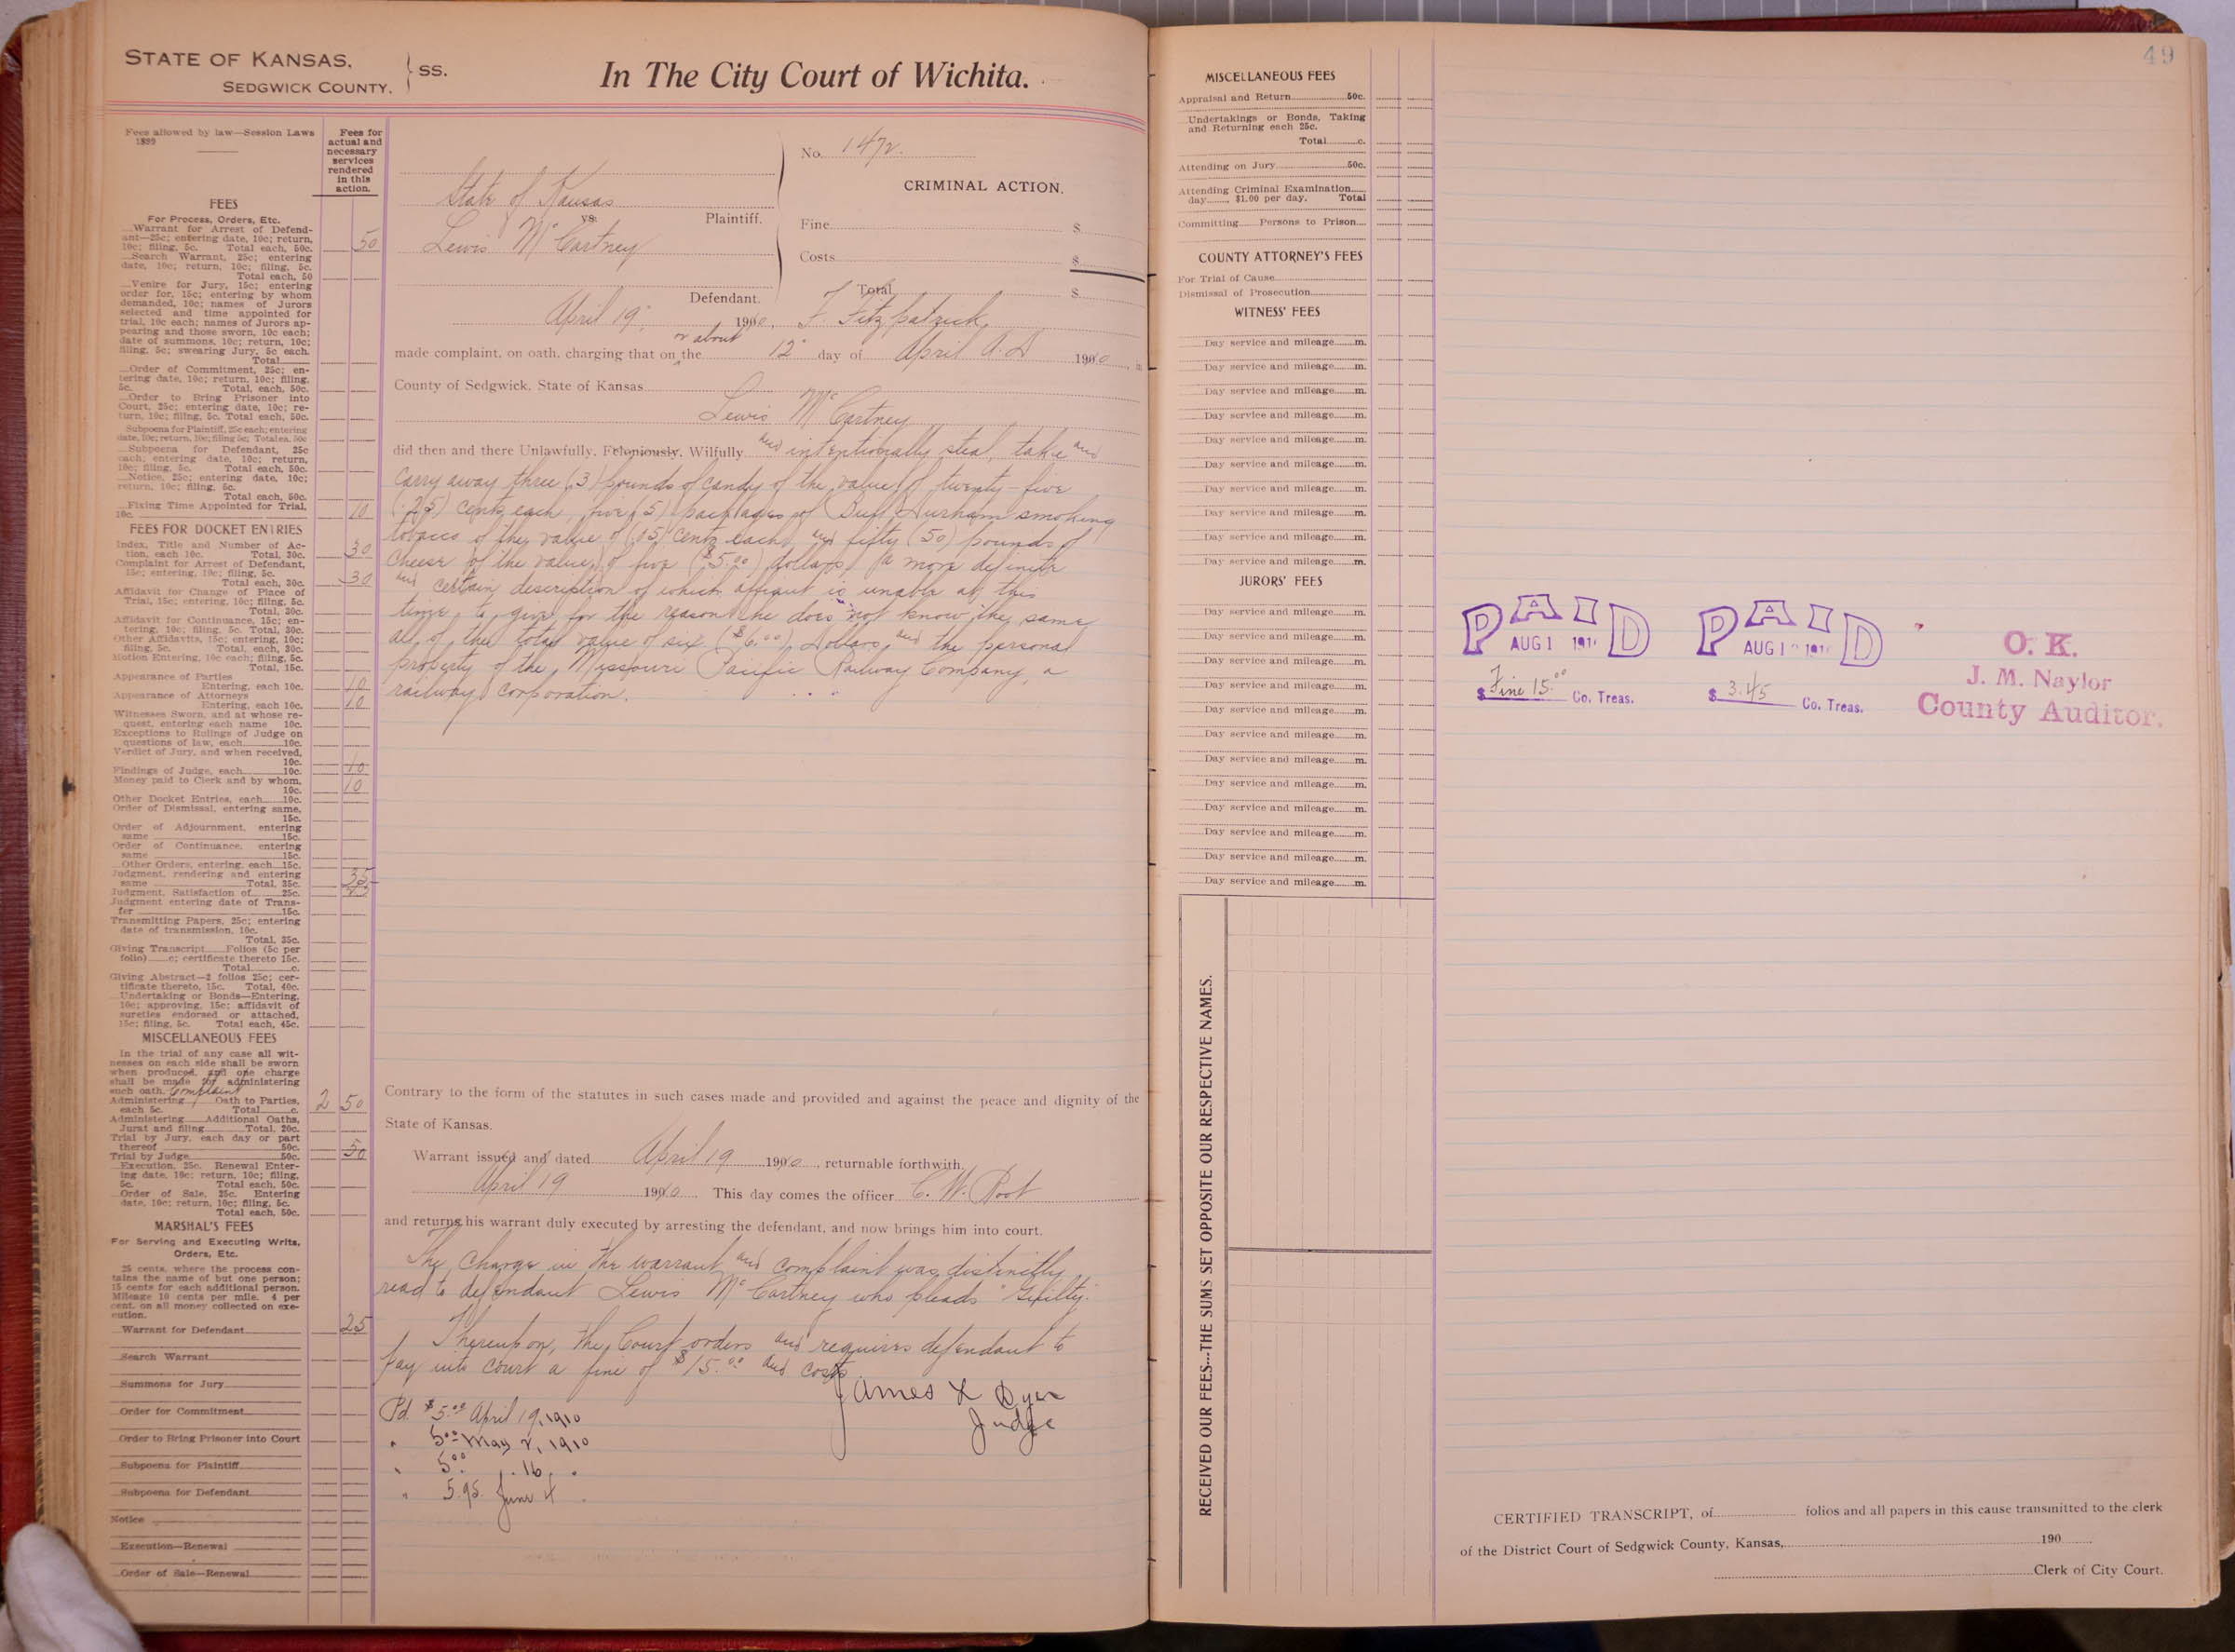 STATE OF KANSAS,
SEDGWICK COUNTY, } SS.
In The City Court of Wichita.
Fees allowed by law—Session Laws
1899
Fees for
actual and
necessary
services
rendered
in this
action.
FEES
For Process, Orders, Etc.
Warrant for Arrest of Defend-
ant—25c; entering date, 10c; return,
10c; filing, 5c. Total each, 50c. 50
Search Warrant, 25c; entering
date, 10c; return, 10c; filing, 5c.
Total each, 50
Venire for Jury, 15c; entering
order for, 15c; entering by whom
demanded, 10c; names of Jurors
selected and time appointed for
trial, 10c each; names of Jurors ap-
pearing and those sworn, 10c each;
date of summons, 10c; return, 10c;
filing, 5c; swearing Jury, 5c each.
Total
Order of Commitment, 25c; en-
tering date, 10c; return, 10c; filing,
5c. Total, each, 50c.
Order to Bring Prisoner into
Court, 25c; entering date, 10c; re-
turn, 10c; filing, 5c. Total each, 50c.
Subpoena for Plaintiff, 25c each; entering
date, 10c; return, 10c; filing 5c; Total ea. 50c
Subpoena for Defendant, 25c
each; entering date, 10c; return,
10c; filing, 5c. Total each, 50c.
Notice, 25c; entering date, 10c;
return, 10c; filing, 5c.
Total each, 50c.
Fixing Time Appointed for Trial,
10c. 10
FEES FOR DOCKET ENTRIES
Index, Title and Number of Ac-
tion, each 10c. Total, 30c. 30
Complaint for Arrest of Defendant,
15c; entering, 10c; filing, 5c.
Total each, 30c. 30
Affidavit for Change of Place of
Trial, 15c; entering, 10c; filing, 5c.
Total, 30c.
Affidavit for Continuance, 15c; en-
tering, 10c; filing, 5c. Total, 30c.
Other Affidavits, 15c; entering, 10c;
filing, 5c. Total, each, 30c.
Motion Entering, 10c each; filing, 5c.
Total, 15c.
Appearance of Parties
Entering, each 10c. 10
Appearance of Attorneys
Entering, each 10c. 10
Witnesses Sworn, and at whose re-
quest, entering each name 10c.
Exceptions to Rulings of Judge on
questions of law, each 10c.
Verdict of Jury, and when received,
10c.
Findings of Judge, each 10c. 10
Money paid to Clerk and by whom,
10c. 10
Other Docket Entries, each 10c.
Order of Dismissal, entering same,
15c.
Order of Adjournment, entering
same 15c.
Order of Continuance, entering
same 15c.
Other Orders, entering, each 15c.
Judgment, rendering and entering
same Total, 35c. 35
Judgment, Satisfaction of 25c.
Judgment entering date of Trans-
fer 15c.
Transmitting Papers, 25c; entering
date of transmission, 10c.
Total, 35c.
Giving Transcript Folios (5c per
folio) c; certificate thereto 15c.
Total c.
Giving Abstract—2 folios 25c; cer-
tificate thereto, 15c. Total, 40c.
Undertaking or Bonds—Entering,
10c; approving, 15c; affidavit of
sureties endorsed or attached,
15c; filing, 5c. Total each, 45c.
MISCELLANEOUS FEES
In the trial of any case all wit-
nesses on each side shall be sworn
when produced, and one charge
shall be made for administering
such oath. Complaint
Administering Oath to Parties,
each 5c. Total c. 2 50
Administering Additional Oaths,
Jurat and filing Total, 20c.
Trial by Jury, each day or part
thereof 50c.
Trial by Judge 50c. 50
Execution, 25c. Renewal Enter-
ing date, 10c; return, 10c; filing,
5c. Total each, 50c.
Order of Sale, 25c. Entering
date, 10c; return, 10c; filing, 5c.
Total each, 50c.
MARSHAL'S FEES
For Serving and Executing Writs,
Orders, Etc.
25 cents, where the process con-
tains the name of but one person;
15 cents for each additional person.
Mileage 10 cents per mile. 4 per
cent. on all money collected on exe-
cution.
Warrant for Defendant 25
Search Warrant
Summons for Jury
Order for Commitment
Order to Bring Prisoner into Court
Subpoena for Plaintiff
Subpoena for Defendant
Notice
Execution—Renewal
Order of Sale—Renewal
No. 1472.
CRIMINAL ACTION.
State of Kansas
vs. Plaintiff.
Lewis McCartney
Defendant.
Fine $
Costs $
Total $
April 19, 1910, F. Fitzpatrick
made complaint, on oath, charging that on or about the 12 day of April A.D. 1910, in
County of Sedgwick, State of Kansas
Lewis McCartney
did then and there Unlawfully, Feloniously, Wilfully and intentionally steal, take and
carry away three (3) pounds of candy of the value of twenty-five
(.25) cents each, five (5) packages of Bull Durham smoking
tobacco of the value of (.15) cents each, and fifty (50) pounds of
cheese of the value of five ($5.00) dollars, (a more definite
and certain description of which affiant is unable at this
time, to give for the reason he does not know the same
all of the total value of six ($6.00) Dollars, and the personal
property of the Missouri Pacific Railway Company, a
railway corporation.
Contrary to the form of the statutes in such cases made and provided and against the peace and dignity of the
State of Kansas.
Warrant issued and dated April 19 1910, returnable forthwith.
April 19 1910 This day comes the officer C. W. Root
and returns his warrant duly executed by arresting the defendant, and now brings him into court.
The charge in the warrant and complaint was distinctly
read to defendant Lewis McCartney who pleads "Guilty."
Thereupon, the Court orders and requires defendant to
pay into court a fine of $15.00 and costs.
James L Dyer
Judge
Pd. $5.00 April 19, 1910
" 5.00 May 2, 1910
" 5.00 " 16, "
" 5.95 June 4 "
MISCELLANEOUS FEES
Appraisal and Return 50c.
Undertakings or Bonds, Taking
and Returning each 25c.
Total c.
Attending on Jury 50c.
Attending Criminal Examination
day $1.00 per day. Total
Committing Persons to Prison
COUNTY ATTORNEY'S FEES
For Trial of Cause
Dismissal of Prosecution
WITNESS' FEES
Day service and mileage m.
Day service and mileage m.
Day service and mileage m.
Day service and mileage m.
Day service and mileage m.
Day service and mileage m.
Day service and mileage m.
Day service and mileage m.
Day service and mileage m.
Day service and mileage m.
JURORS' FEES
Day service and mileage m.
Day service and mileage m.
Day service and mileage m.
Day service and mileage m.
Day service and mileage m.
Day service and mileage m.
Day service and mileage m.
Day service and mileage m.
Day service and mileage m.
Day service and mileage m.
Day service and mileage m.
Day service and mileage m.
RECEIVED OUR FEES---THE SUMS SET OPPOSITE OUR RESPECTIVE NAMES.
49
PAID
AUG 1 191
$ Fine 15.00 Co. Treas.
PAID
AUG 1 191
$ 3.45 Co. Treas.
O. K.
J. M. Naylor
County Auditor.
CERTIFIED TRANSCRIPT, of folios and all papers in this cause transmitted to the clerk
of the District Court of Sedgwick County, Kansas, 190
Clerk of City Court.